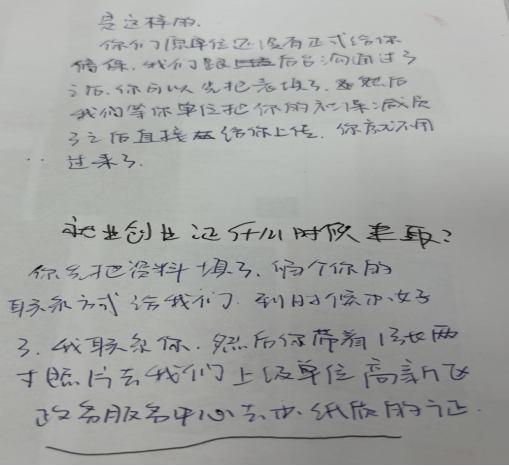 是这样的.
你们原单位还没有正式给你
停保, 我们跟后台沟通过了
之后, 你可以先把表填了, 然后
我们等你单位把你的社保减员
了之后直接给你上传. 你就不用
过来了.
就业创业证什么时候来取?
你先把资料填了, 留个你的
联系方式给我们. 到时候办好
了, 我联系你. 然后你带着1张两
寸照片去我们上级单位高新区
政务服务中心去办纸质的证.